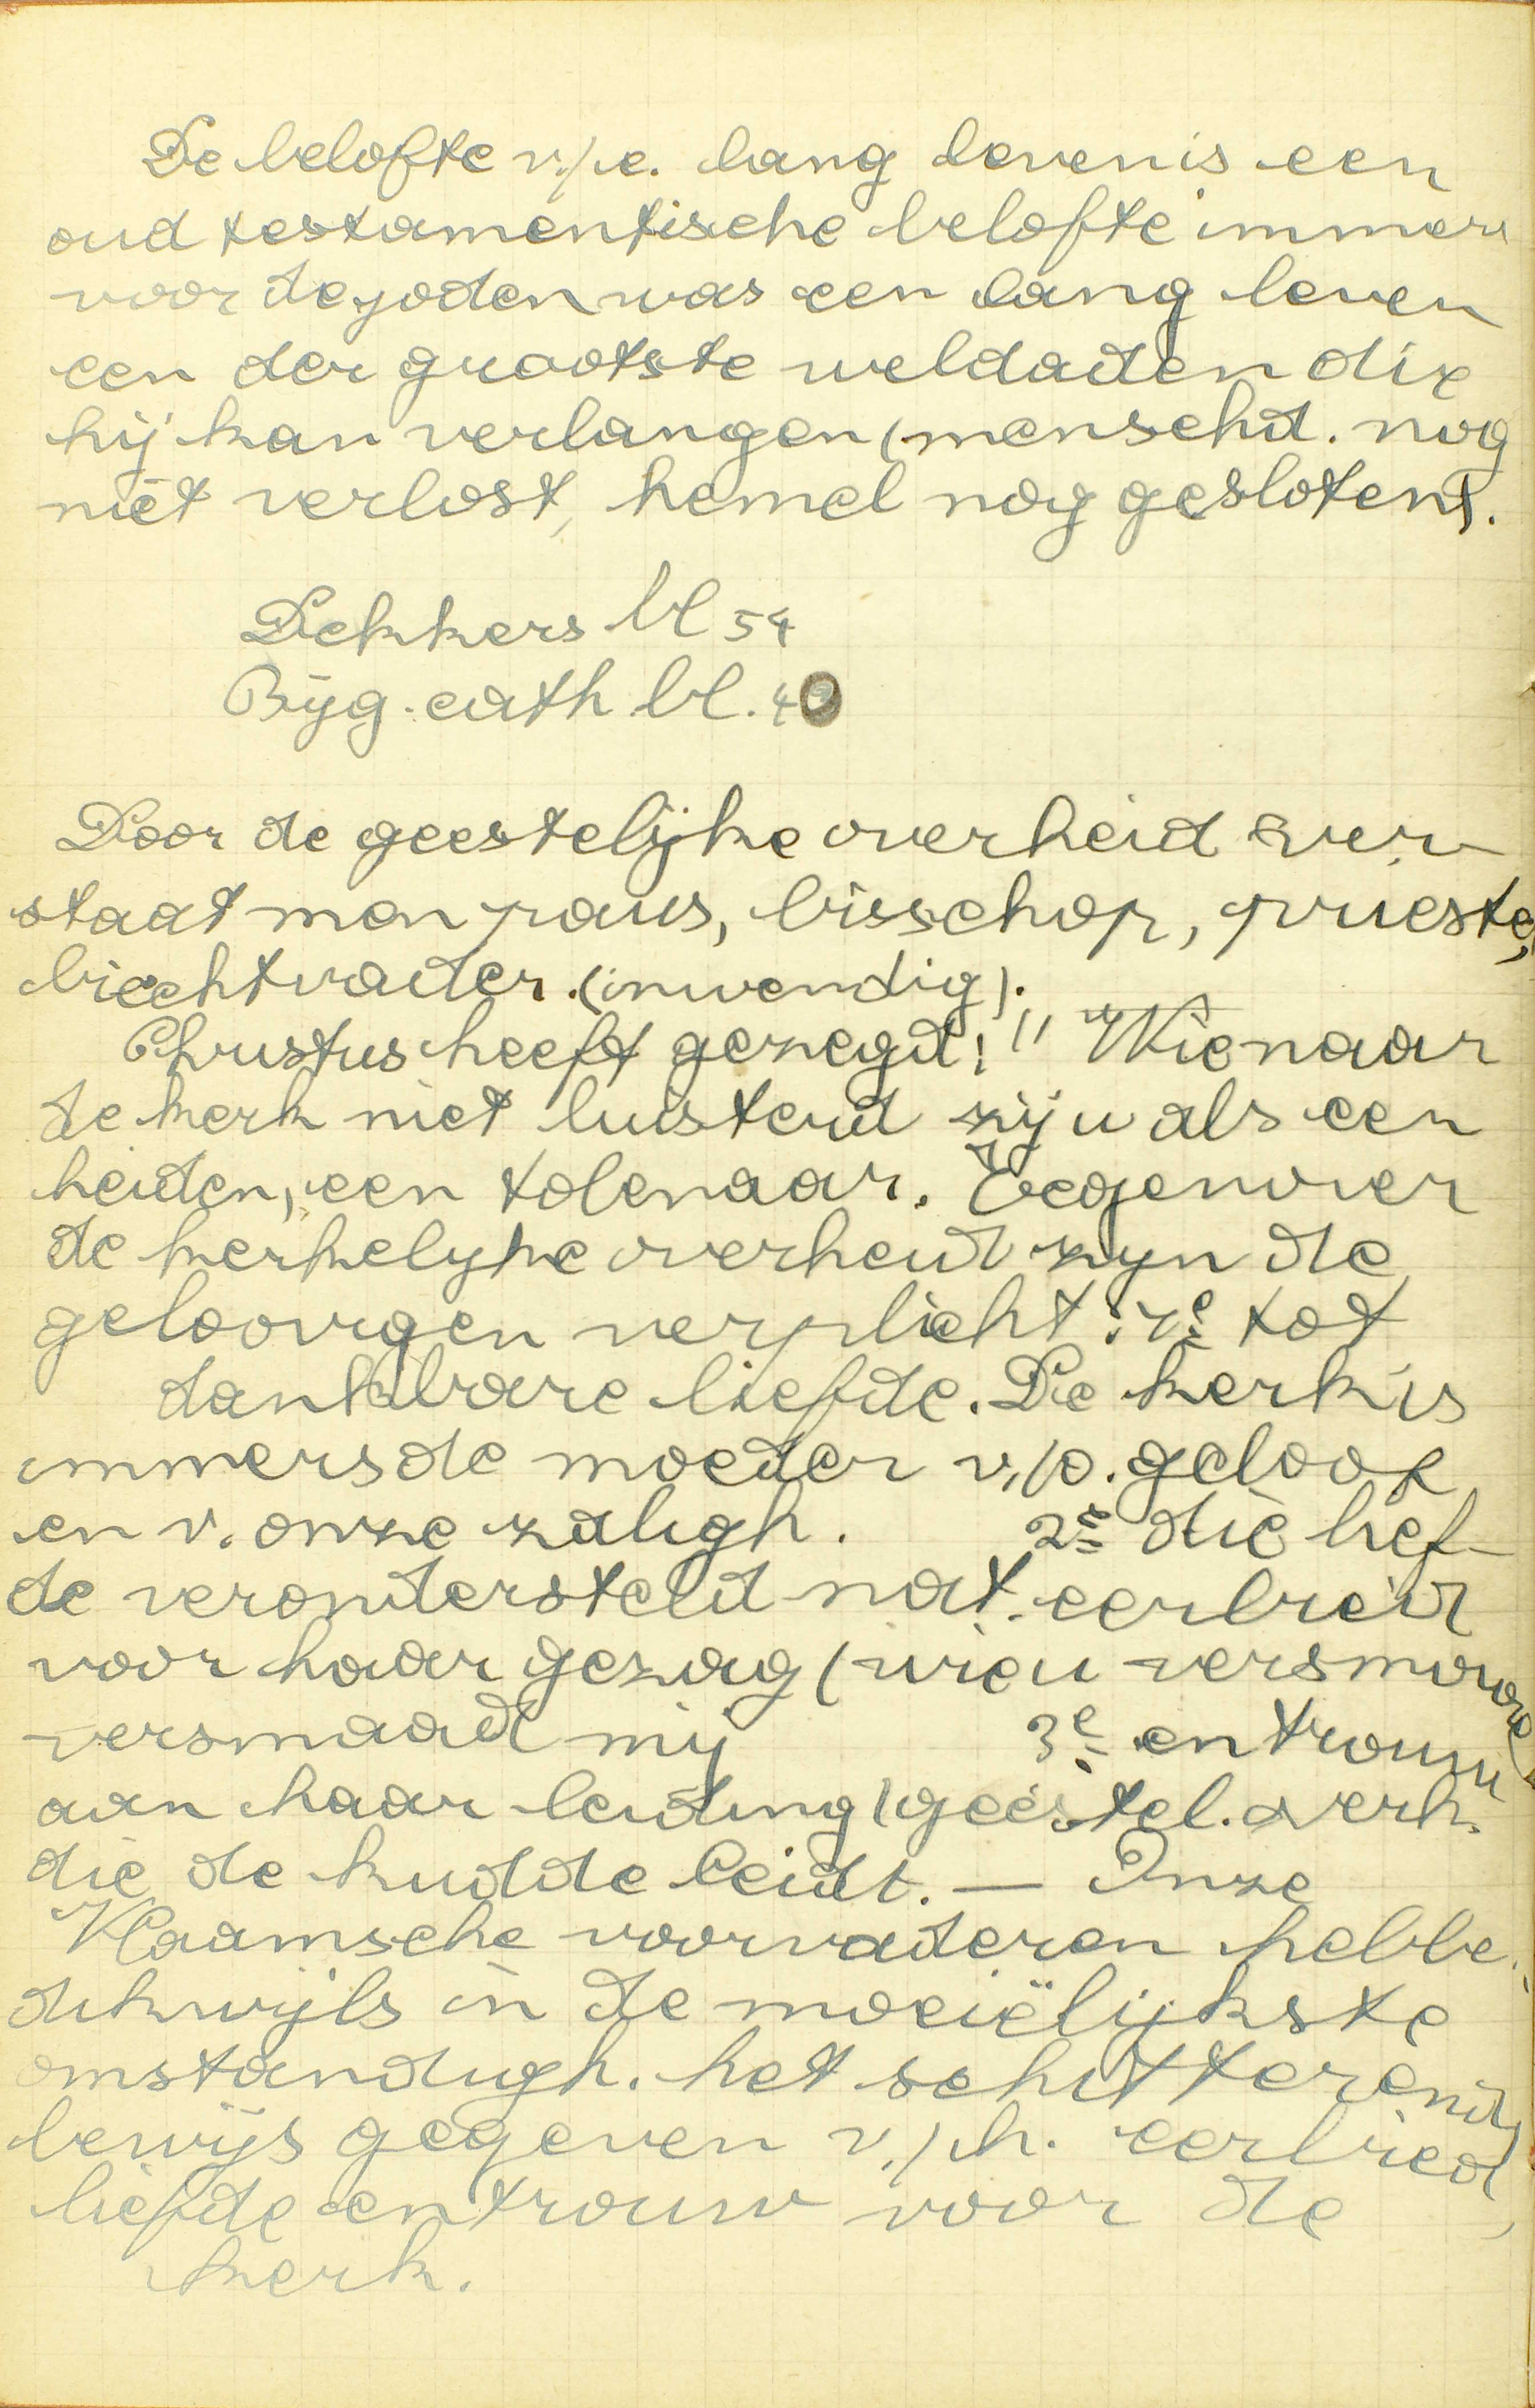 De belofte v./e. lang leven is een
oud testamentische belofte immers
voor de joden was een lang leven
een der grootste weldaden die
hij kan verlangen (menschd. nog
niet verlost, hemel nog gesloten).
Dekkers bl 54
Bijg. cath bl. 40
Door de geestelijke overheid ver-
staat men paus, bisschop, priester,
biechtvader. (inwendig).
Christus heeft gezegd: " Wie naar
de kerk niet luisterd zij u als een
heiden, een tolenaar. Tegenover
de kerkelyke overheid zyn de
geloovigen verplicht: 1e tot
dankbare liefde. De kerk is
immers de moeder v./o. geloof
en v. onze zaligh. 2e die lief-
de verondersteld nat. eerbied
voor haar gezag (wie u versmaad
versmaad mij 3e en trouw
aan haar leiding (geestel. overh.
die de kudde leidt. — Onze
Vlaamsche voorvaderen hebbe.
dikwijls in de moeiëlijkste
omstandigh. het schitterend
bewijs gegeven v./h. eerbied,
liefde en trouw voor de
kerk.